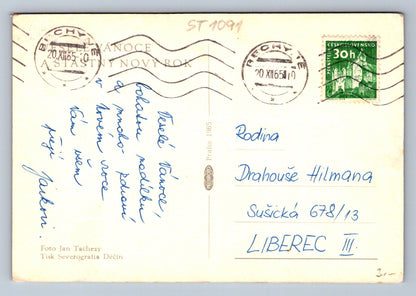 ST 1091
VÁNOCE
A ŠŤASTNÝ NOVÝ ROK
BECHYNĚ
20.XII.65-10
BECHYNĚ
20.XII.65-10
ČESKOSLOVENSKO
30h
Veselé Vánoce,
bohatou nadílku
a mnoho zdraví
v Novém roce
Vám všem
přejí
Praha 1965
Rodina
Drahouše Hilmana
Sušická 678/13
LIBEREC III.
Foto Jan Tachezy
Tisk Severografia Děčín
3,-